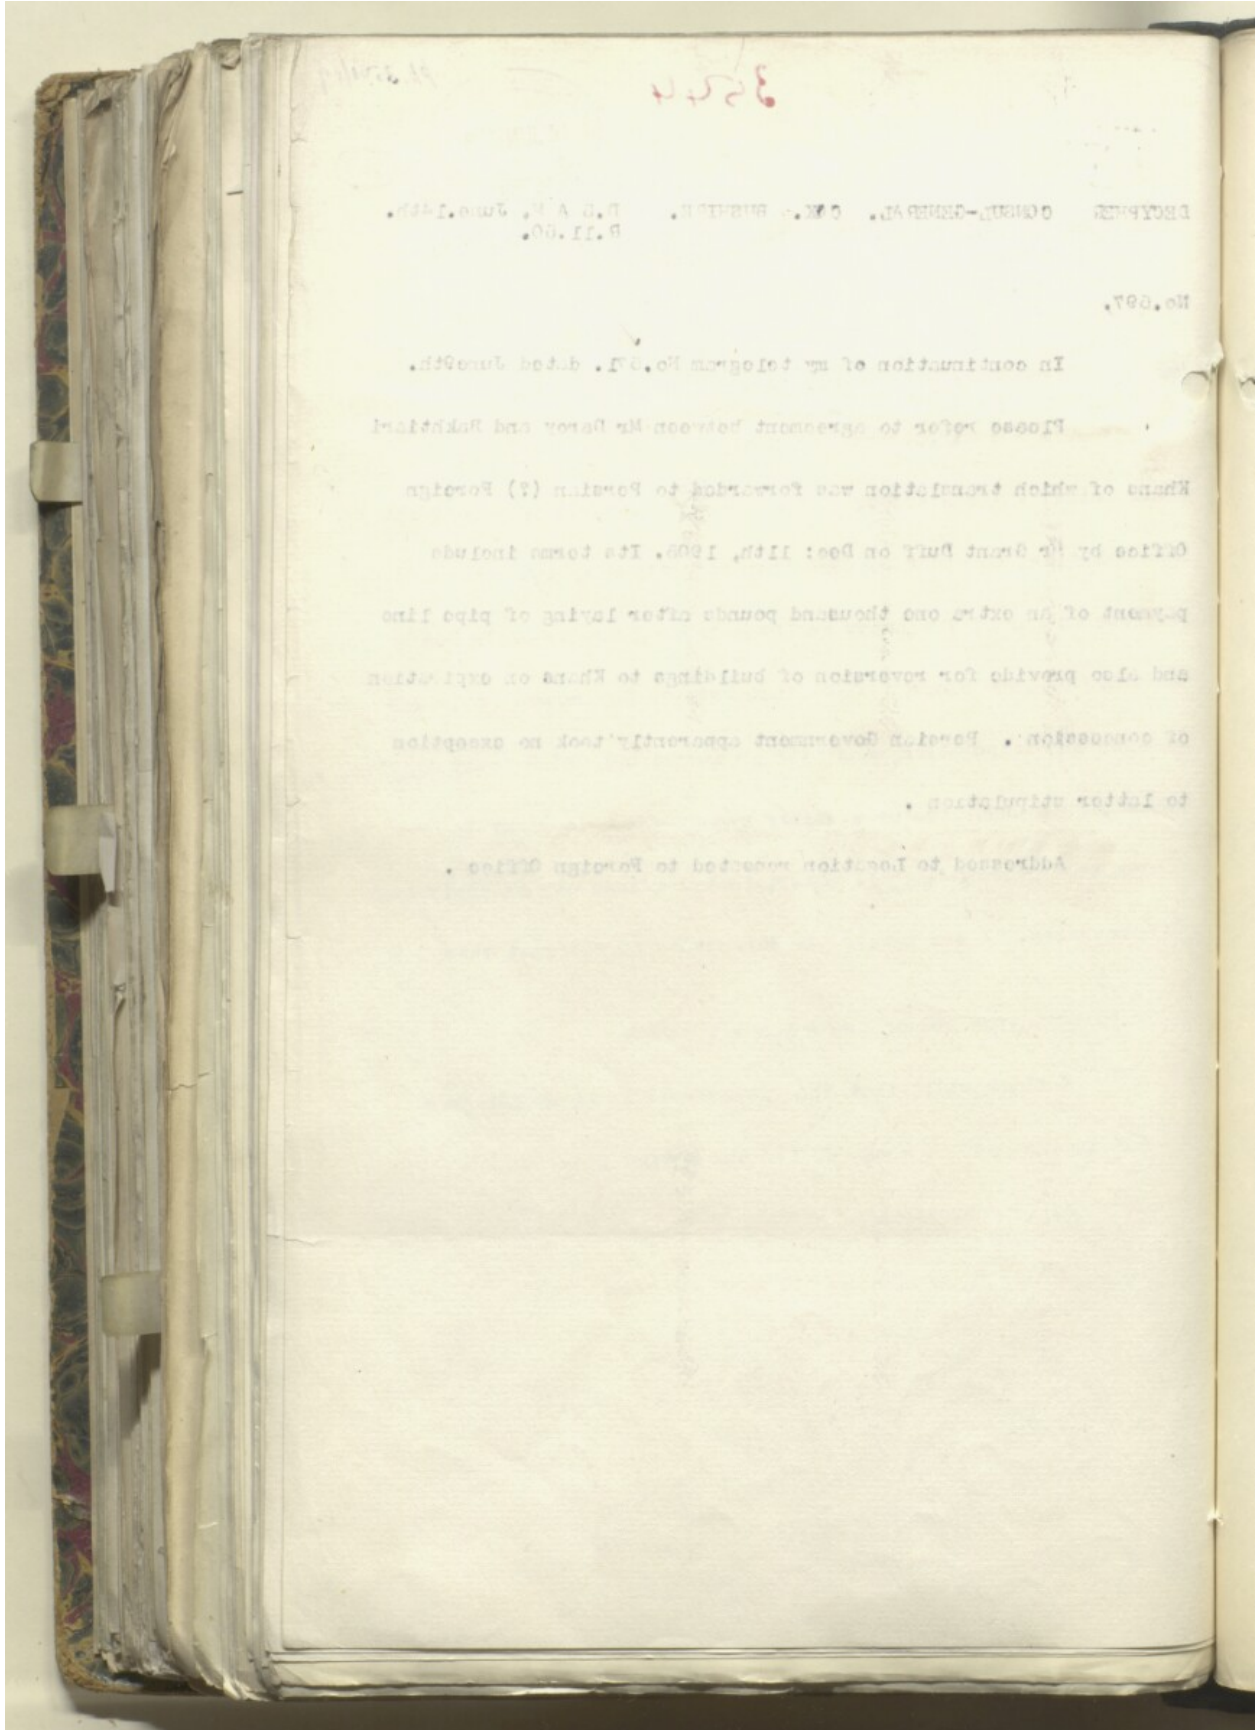 3544
DECYPHER CONSUL-GENERAL. COX. BUSHIRE. June.14th.
R.11.50.
No.597.
In continuation of my telegram dated June9th.
Please refer to agreement between Mr Darcy and Bakhtiari
Khans of which translation was forwarded to Persian (?) Foreign
Office by Mr Grant Duff on Dec: 11th, Its terms include
payment of an extra one thousand pounds after laying of pipe line
and also provide for reversion of buildings to Khans on expiration
of concession . Persian Government apparently took no exception
to latter stipulation .
Addressed to Legation repeated to Foreign Office .